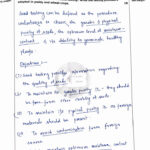 adopted in purity and adopt crops.
Seed testing can be defined as the procedure
undertaken to check the genetic & physical
purity of seeds, the optimum level of moisture
content & its ability to germinate healthy
plants.
Objectives :-
(1) Seed testing provides information regarding
the quality of seeds.
(2) To maintain the genetic purity i.e. they should
be free from other variety of seeds.
(3) To maintain its physical purity ie no foreign
materials should be present.
(4) To avoid contamination from foreign
maintain optimum moisture content